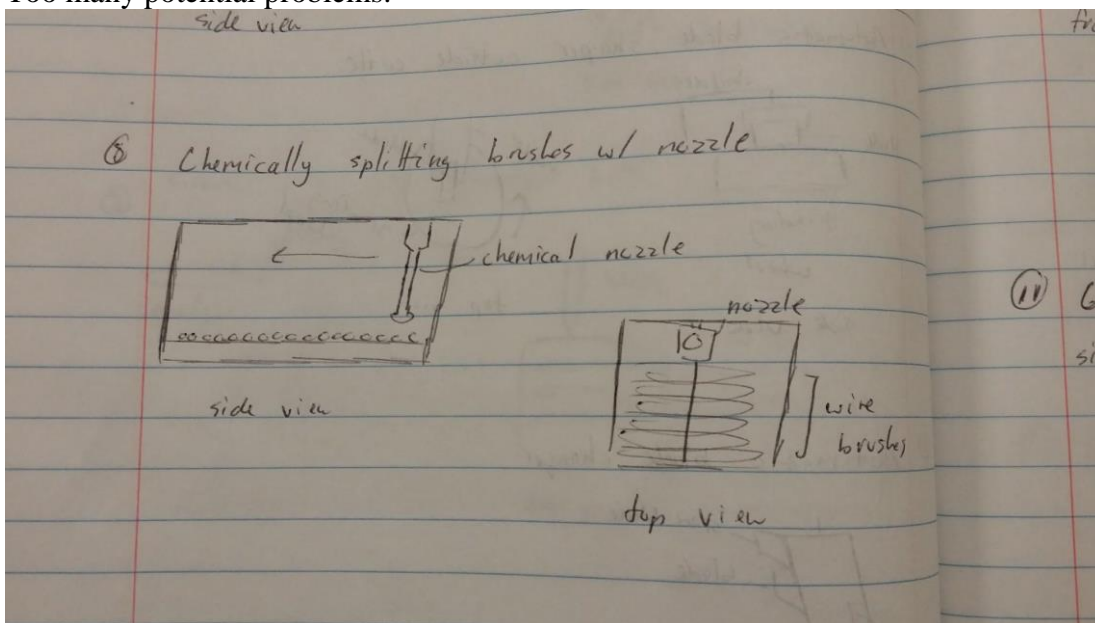 Too many potential problems.
side view
fro
⑧ Chemically splitting brushes w/ nozzle
chemical nozzle
nozzle
⑪ G
si
side view
wire
brushes
top view